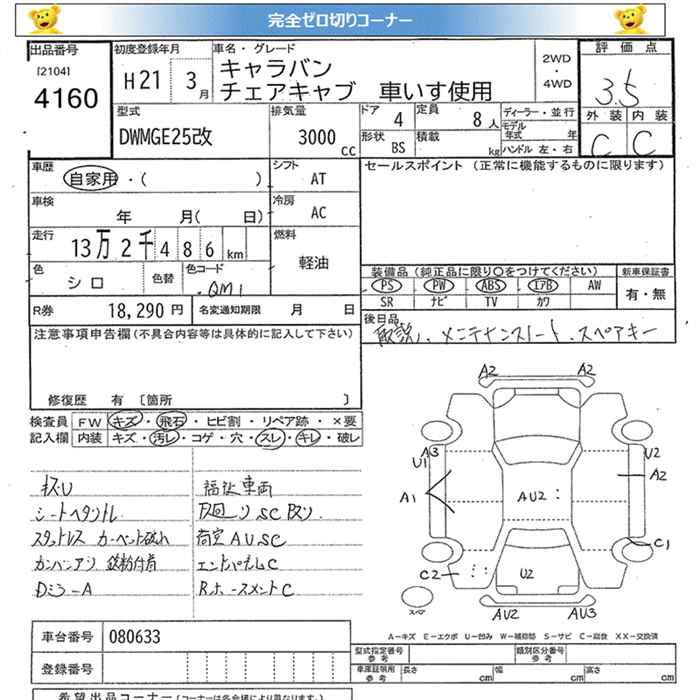 完全ゼロ切りコーナー
出品番号 初度登録年月 車名・グレード 評価点
[2104]
4160
H21 3月
キャラバン
チェアキャブ 車いす使用
2WD
・
4WD
3.5
外装 内装
C C
型式 排気量 ドア 定員
DWMGE25改 3000 cc 4 8人
形状 積載
BS kg
ディーラー・並行
モデル年式 年
ハンドル 左・右
車歴 シフト セールスポイント (正常に機能するものに限ります)
自家用・( ) AT
車検 冷房
年 月( 日) AC
走行 燃料
13万2千486km 軽油
色 色替 色コード
シロ QM1
装備品(純正品に限り○をつけてください) 新車保証書
PS PW ABS エアB AW
SR ナビ TV カワ
有・無
R券 18,290円 名変通知期限 月 日
後日品
スペアキー
注意事項申告欄(不具合内容等は具体的に記入して下さい)
修復歴 有 [箇所 ]
検査員記入欄
FW キズ・飛石・ヒビ割・リペア跡・×要
内装 キズ・汚レ・コゲ・穴・スレ・キレ・破レ
福祉車両
下廻り
荷室 AU.SC
Dミラ-A
A2 A2
A3
U1
A1
U2
A2
AU2
C1
C2
U2
AU2 AU3
スペア
A-キズ E-エクボ U-凹み W-補修跡 S-サビ C-腐食 XX-交換済
車台番号 080633
登録番号
型式指定番号 参考 類別区分番号 参考
車庫証明用 参考 長さ cm 幅 cm 高さ cm
希望出品コーナー(コーナーは各会場により異なります。